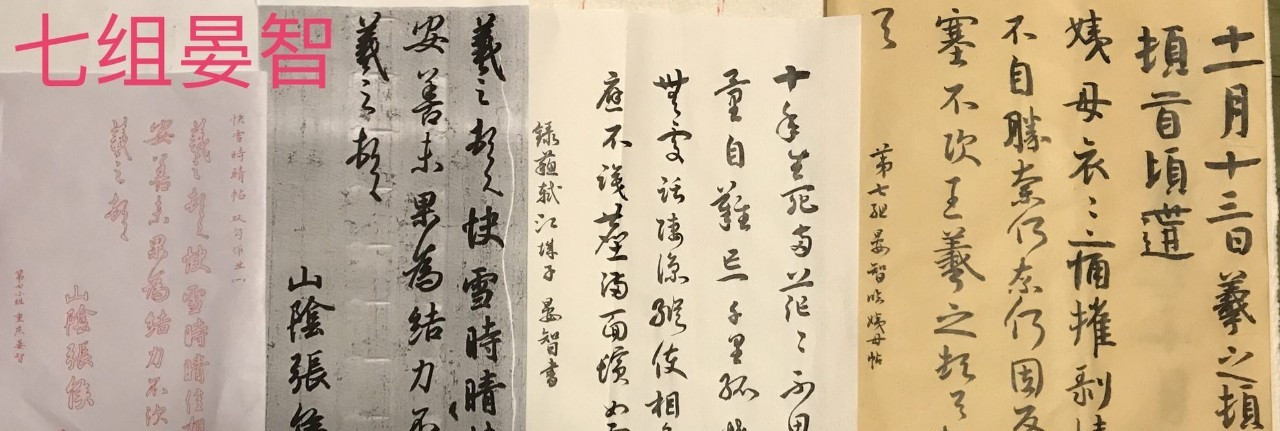 七组晏智
十一月十三日羲之頓
頓首頃遘
姨母哀々痛摧剥情
不自勝奈何奈何因反
塞不次王羲之頓首
第七組晏智臨姨母帖
十年生死兩茫々不思
量自難忘千里孤墳
無處話凄涼縱使相
應不識塵滿面鬢如
錄蘇軾江城子 晏智書
羲之頓首快雪時晴
安善未果為結力不
羲之頓首
山陰張侯
快雪時晴帖 双勾作业一
羲之頓首快雪時晴佳想
安善未果為結力不次
羲之頓首
山陰張侯
第七小組重慶晏智